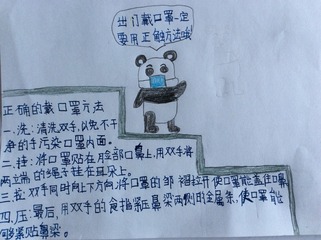 出门戴口罩一定
要用正确方法哦!
正确的戴口罩方法
一、洗:清洗双手,以免不干
净的手污染口罩内面。
二、挂:将口罩贴在脸部口鼻上,用双手将
两端的绳子挂在耳朵上。
三、拉:双手同时向上下方向,将口罩的邹褶拉开使口罩能盖住口鼻
四、压:最后,用双手的食指紧压鼻梁两侧的金属条,使口罩能
够紧贴鼻梁。